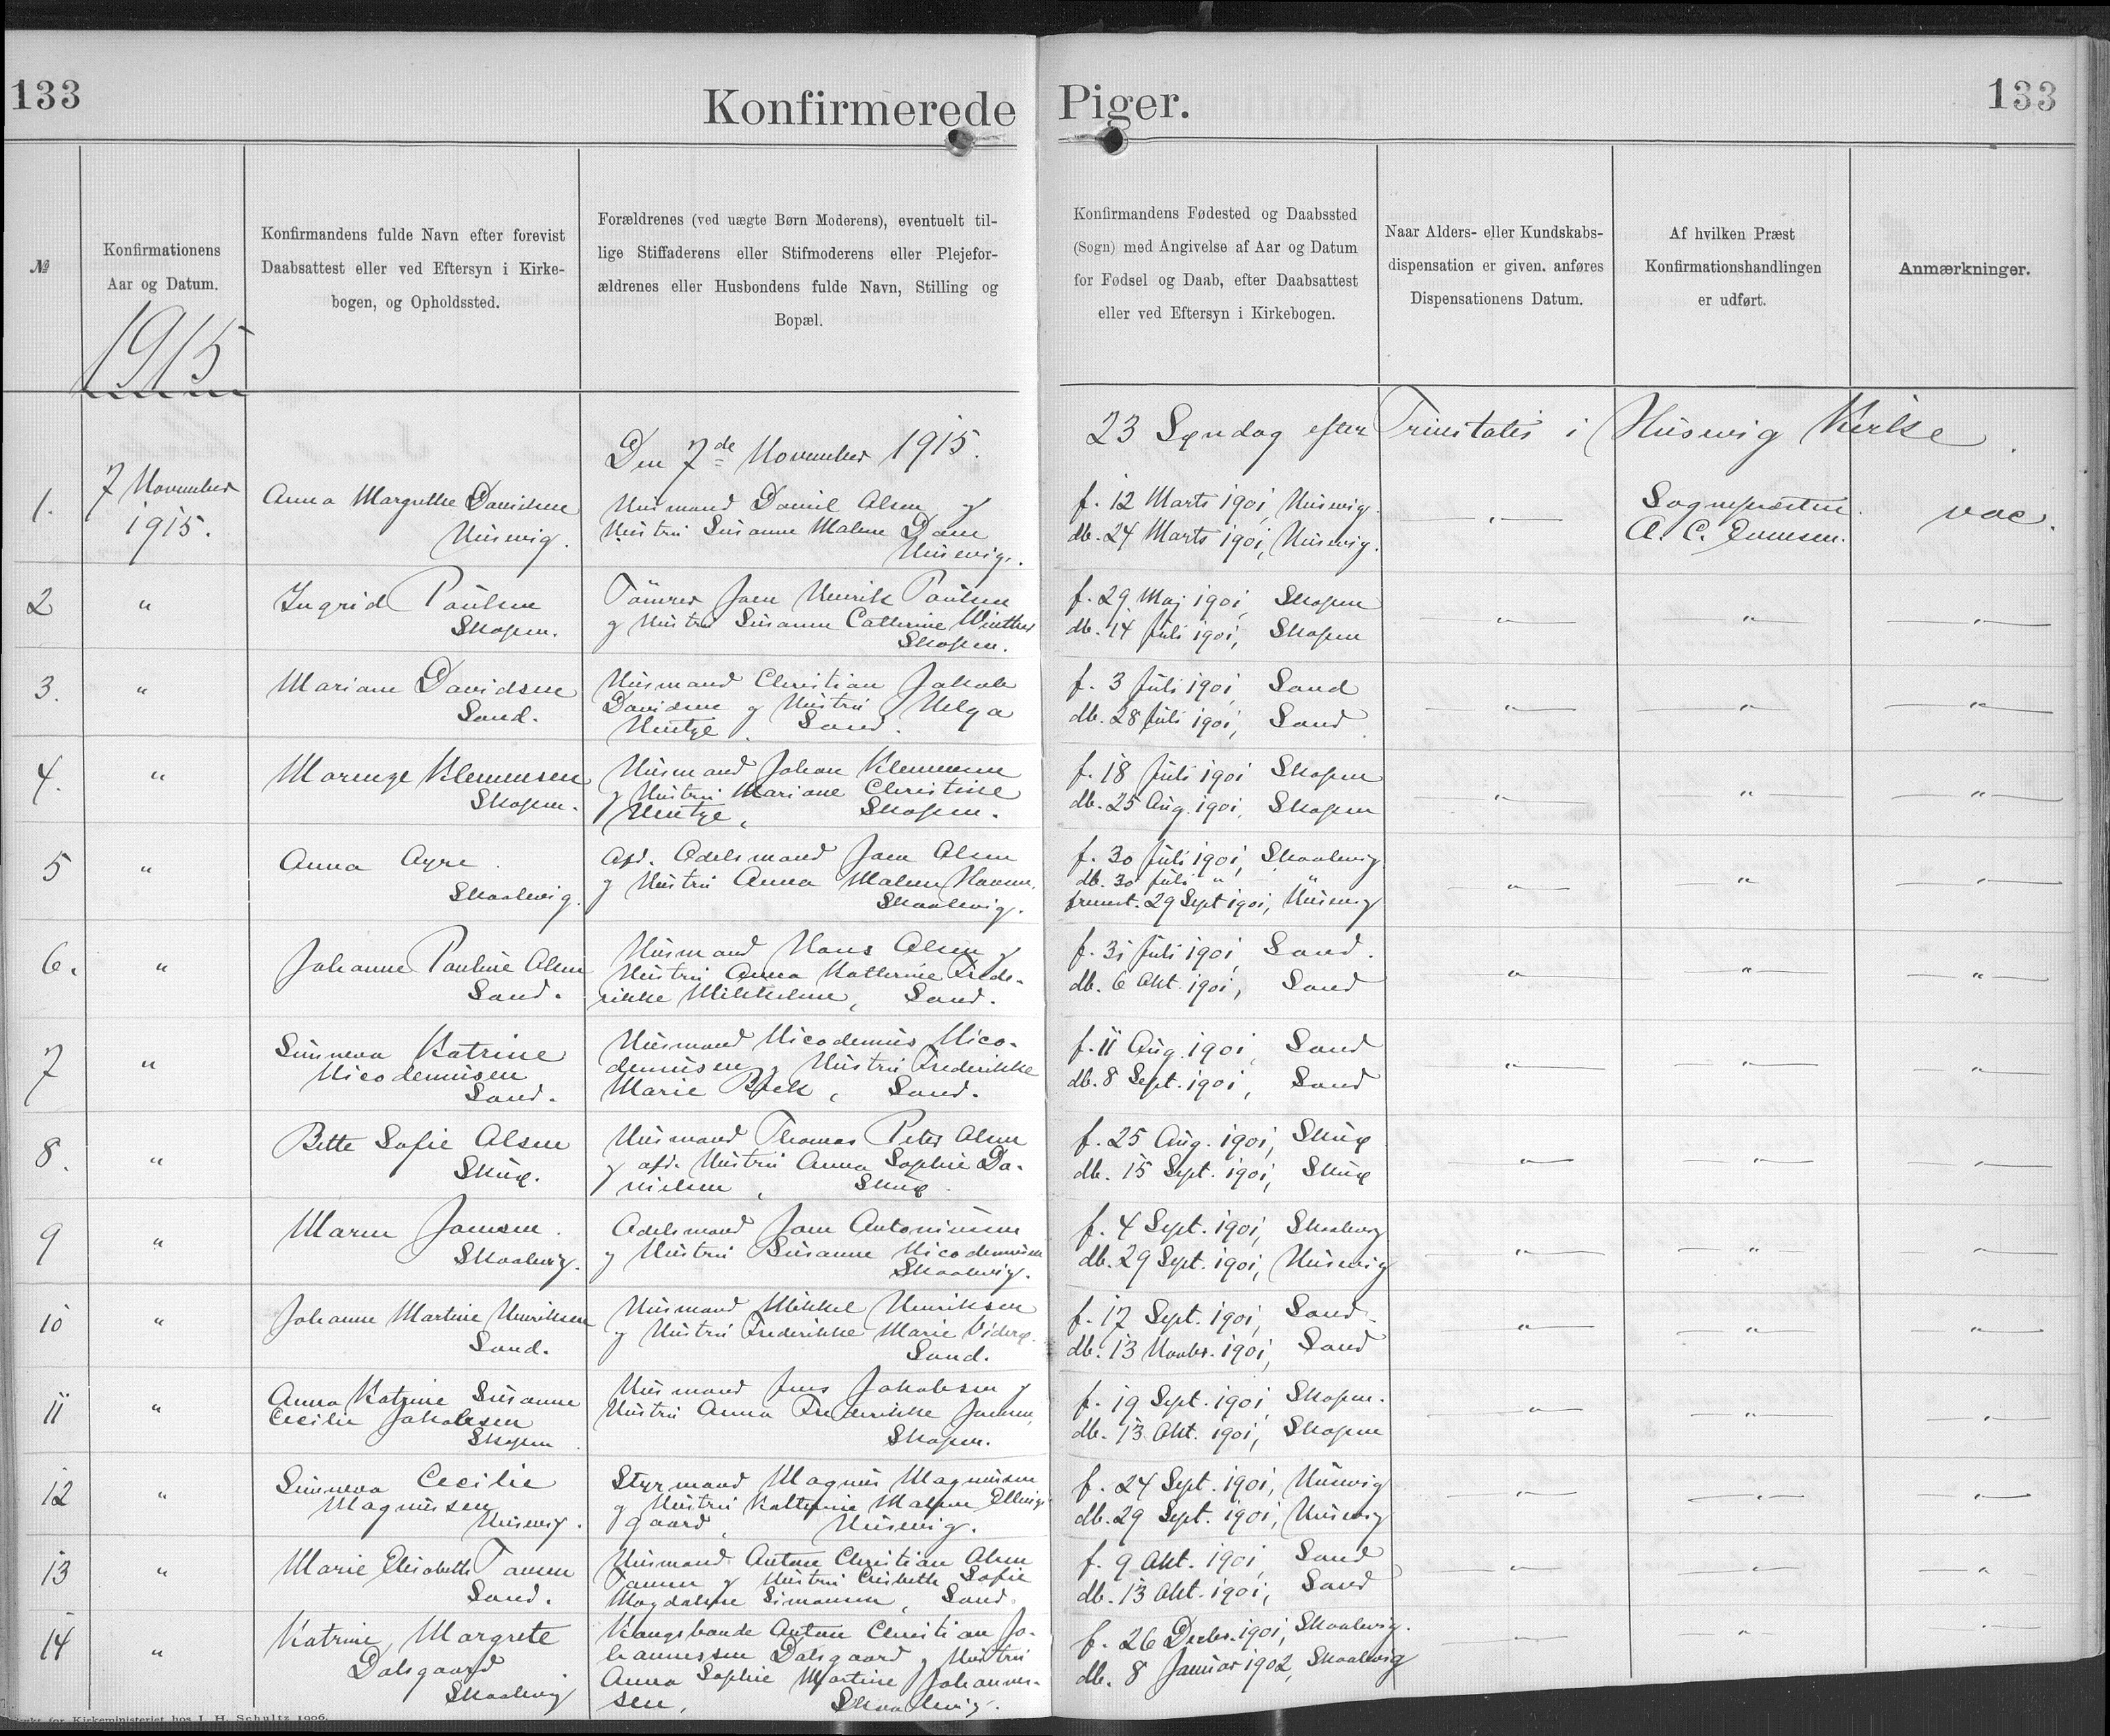 133
Konfirmerede Piger.
133
№
Konfirmationens
Aar og Datum.
1915
Konfirmandens fulde Navn efter forevist
Daabsattest eller ved Eftersyn i Kirke-
bogen, og Opholdssted.
Forældrenes (ved uægte Børn Moderens), eventuelt til-
lige Stiffaderens eller Stifmoderens eller Plejefor-
ældrenes eller Husbondens fulde Navn, Stilling og
Bopæl.
Konfirmandens Fødested og Daabssted
(Sogn) med Angivelse af Aar og Datum
for Fødsel og Daab, efter Daabsattest
eller ved Eftersyn i Kirkebogen.
Naar Alders- eller Kundskabs-
dispensation er given, anføres
Dispensationens Datum.
Af hvilken Præst
Konfirmationshandlingen
er udført.
Anmærkninger.
Den 7de November 1915. 23 Søndag efter Trinitatis i Husevig Kirke.
1.
7 November
1915.
Anna Margrethe Danielsen
Husevig.
Husmand Daniel Olsen og
Hustru Susanne Malene Dam
Husevig.
f. 12 Marts 1901, Husevig.
db. 24 Marts 1901, Husevig.
— " —
Sognepræsten
A. C. Evensen.
vac.
2
"
Ingrid Poulsen
Skopen.
Tömrer Joen Henrik Poulsen
og Hustru Susanne Cathrine Winther
Skopen.
f. 29 Maj 1901, Skopen
db. 14 Juli 1901, Skopen
— " —
"
— " —
3.
"
Mariane Davidsen
Sand.
Husmand Christian Jakob
Davidsen og Hustru Helga
Hentze. Sand.
f. 3 Juli 1901, Sand
db. 28 Juli 1901, Sand
— " —
— " —
— " —
4.
"
Marenze Klemensen
Skopen.
Husmand Johan Klemensen
og Hustru Mariane Christine
Hentze, Skopen.
f. 18 Juli 1901 Skopen
db. 25 Aug. 1901, Skopen
— " —
— " —
— " —
5
"
Anna Ayre
Skaalevig.
Afd. Odelsmand Joen Olsen
og Hustru Anna Malene
Skaalevig.
f. 30 Juli 1901, Skaalevig
db. 30 Juli " "
fremst. 29 Sept 1901, Husevig
— " —
— " —
— " —
6.
"
Johanne Pauline Olsen
Sand.
Husmand Hans Olsen og
Hustru Anna Kathrine Frede-
rikke Mikkelsen, Sand.
f. 31 Juli 1901, Sand.
db. 6 Okt. 1901, Sand
— " —
— " —
— " —
7
"
Sunneva Katrine
Nicodemusen
Sand.
Husmand Nicodemus Nico-
demusen og Hustru Frederikke
Marie Bæk, Sand.
f. 11 Aug. 1901, Sand
db. 8 Sept. 1901, Sand
— " —
— " —
— " —
8.
"
Bette Sofie Olsen
Skuø.
Husmand Thomas Peter Olsen
og afd. Hustru Anna Sophie Da-
nielsen, Skuø.
f. 25 Aug. 1901, Skuø
db. 15 Sept. 1901, Skuø
— " —
— " —
— " —
9
"
Maren Joensen.
Skaalevig.
Odelsmand Joen Antoniusen
og Hustru Susanne Nicodemusen
Skaalevig.
f. 4 Sept. 1901, Skaalevig
db. 29 Sept. 1901, Husevig
— " —
— " —
— " —
10
"
Johanne Martine Henriksen
Sand.
Husmand Mikkel Henriksen
og Hustru Frederikke Marie Viderø.
Sand.
f. 17 Sept. 1901, Sand.
db. 13 Novbr. 1901, Sand
— " —
— " —
— " —
11
"
Anna Katrine Susanne
Cecilie Jakobsen
Skopen
Husmand Jens Jakobsen og
Hustru Anna Frederikke Joensen,
Skopen.
f. 19 Sept. 1901, Skopen.
db. 13 Okt. 1901, Skopen
— " —
— " —
— " —
12
"
Sunneva Cecilie
Magnusen
Husevig.
Styrmand Magnus Magnusen
og Hustru Kathrine Malene Ellings-
gaard, Husevig.
f. 24 Sept. 1901, Husevig
db. 29 Sept. 1901, Husevig
— " —
— " —
— " —
13
"
Marie Elisabeth Tausen
Sand.
Husmand Anton Christian Olsen
Tausen og Hustru Elsebeth Sofie
Magdalene Simonsen, Sand.
f. 9 Okt. 1901, Sand
db. 13 Okt. 1901, Sand
— " —
— " —
— " —
14
"
Katrine Margrete
Dalsgaard
Skaalevig
Kongsbonde Anton Christian Jo-
hannessen Dalsgaard og Hustru
Anna Sophie Martine Johannes-
sen, Skaalevig.
f. 26 Decbr. 1901, Skaalevig.
db. 8 Januar 1902, Skaalevig
— " —
— " —
— " —
for Kirkeministeriet hos J. H. Schultz 1906.